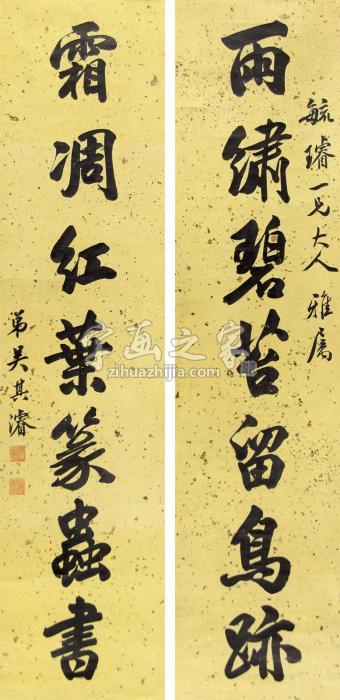 毓璿一兄大人雅属
雨繡碧苔留鳥跡
霜凋紅葉篆蟲書
弟吴其濬
字画之家
zihuazhijia.com